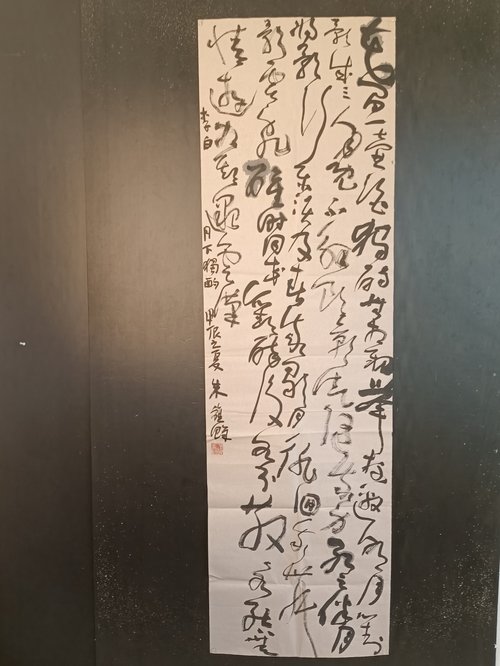 花間一壺酒獨酌無相親舉杯邀明月對
影成三人月既不解飲影徒隨我身暫伴月
將影行樂須及春我歌月徘徊我舞
影零亂醒時同交歡醉後各分散永結無
情遊相期邈雲漢
李白 月下獨酌 甲辰之夏 朱